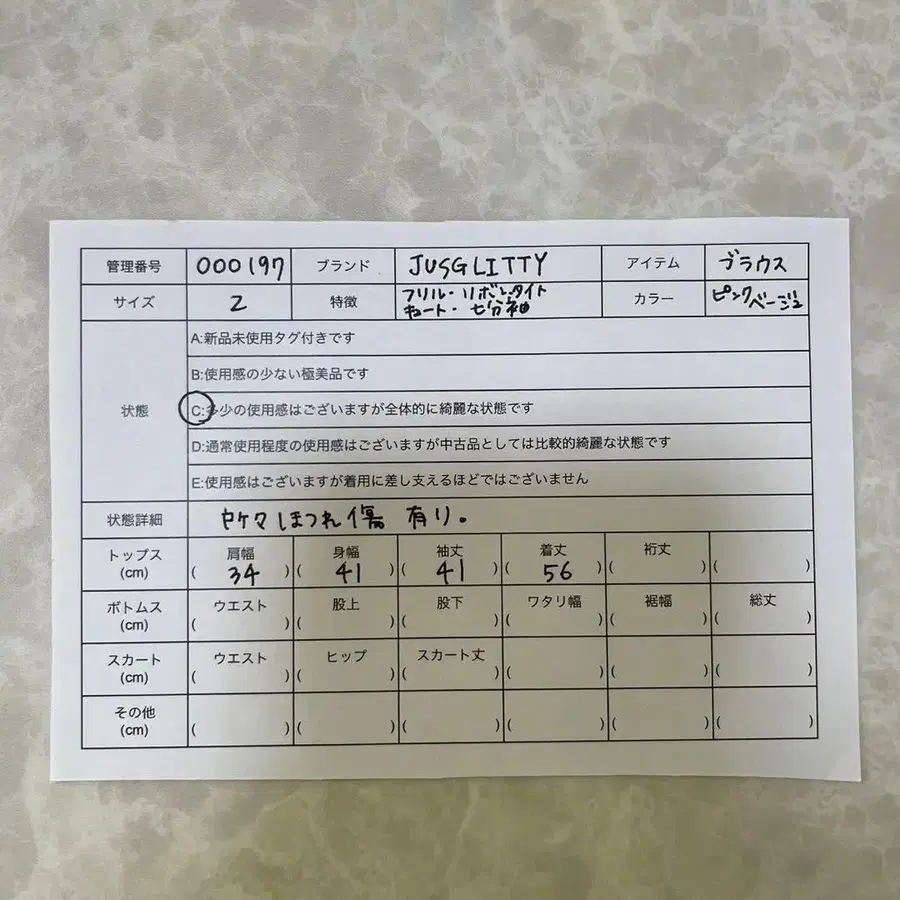 管理番号 000197 ブランド JUSGLITTY アイテム ブラウス
サイズ 2 特徴 フリル・リボンタイト カラー ピンクベージュ
キュート・七分袖
状態
A:新品未使用タグ付きです
B:使用感の少ない極美品です
C:多少の使用感はございますが全体的に綺麗な状態です
D:通常使用程度の使用感はございますが中古品としては比較的綺麗な状態です
E:使用感はございますが着用に差し支えるほどではございません
状態詳細 ほつれ傷 有り。
トップス 肩幅 身幅 袖丈 着丈 裄丈
(cm) ( 34 ) ( 41 ) ( 41 ) ( 56 ) ( ) ( )
ボトムス ウエスト 股上 股下 ワタリ幅 裾幅 総丈
(cm) ( ) ( ) ( ) ( ) ( ) ( )
スカート ウエスト ヒップ スカート丈
(cm) ( ) ( ) ( ) ( ) ( ) ( )
その他
(cm) ( ) ( ) ( ) ( ) ( ) ( )